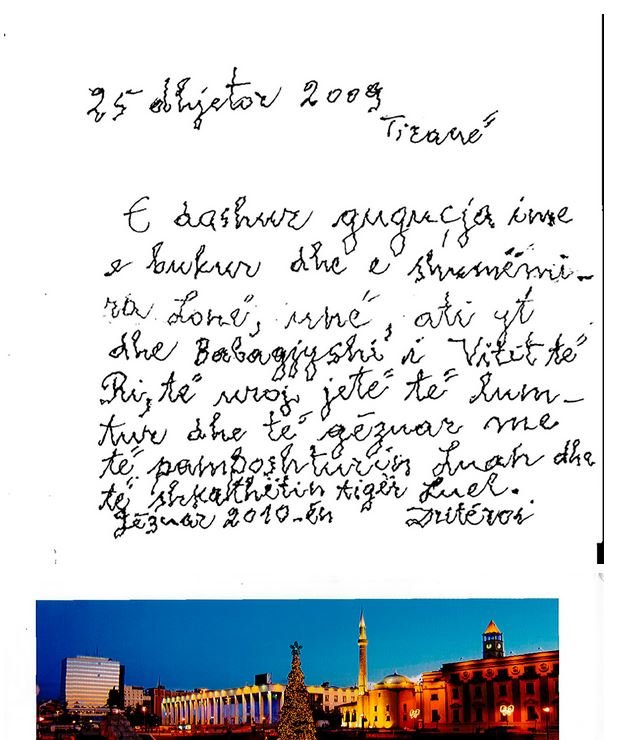 25 dhjetor 2009
Tiranë
E dashur guguçja ime
e bukur dhe e shumëmi-
ra Lonë, unë, ati yt
dhe Babagjyshi i Vitit të
Ri, të uroj jetë të lum-
tur dhe të gëzuar me
të pamposhturin Luan dhe
të shkathëtin tigër Luel.
Gëzuar 2010-ën Dritëroi